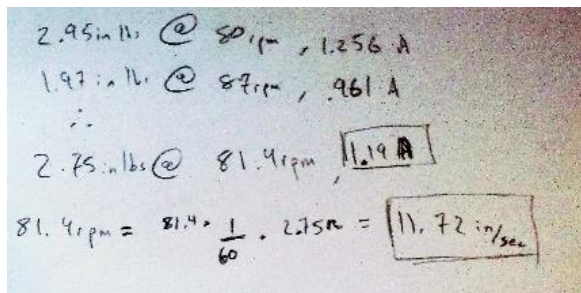 2.95 in lbs @ 80 rpm, 1.256 A
1.97 in lbs @ 87 rpm, .961 A
∴
2.75 in lbs @ 81.4 rpm, 1.19 A
81.4 rpm = 81.4 · 1/60 · 2.75π = 11.72 in/sec